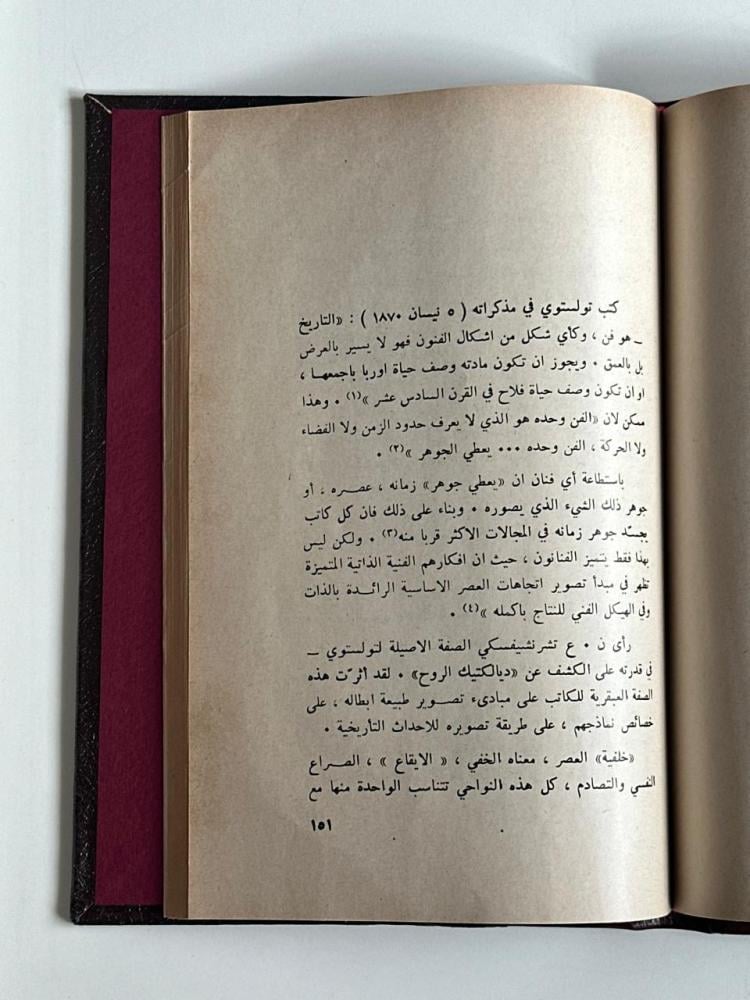 كتب تولستوي في مذكراته ( ٥ نيسان ١٨٧٠ ) : «التاريخ
ـ هو فن ، وكأي شكل من اشكال الفنون فهو لا يسير بالعرض
بل بالعمق ٠ ويجوز ان تكون مادته وصف حياة اوربا باجمعهـا ،
او ان تكون وصف حياة فلاح في القرن السادس عشر »(١) ٠ وهذا
ممكن لان «الفن وحده هو الذي لا يعرف حدود الزمن ولا الفضاء
ولا الحركة ، الفن وحده ٠٠٠ يعطي الجوهر »(٢) ٠
باستطاعة أي فنان ان «يعطي جوهر» زمانه ، عصـره ، أو
جوهر ذلك الشيء الذي يصوره ٠ وبناء على ذلك فان كل كاتب
يجسّد جوهر زمانه في المجالات الاكثر قربا منه(٣) ٠ ولكن ليس
بهذا فقط يتميز الفنانون ، حيث ان افكارهم الفنية الذاتية المتميزة
تظهر في مبدأ تصوير اتجاهات العصر الاساسية الرائـدة بالذات
وفي الهيكل الفني للنتاج باكمله »(٤) ٠
رأى ن ٠ ع تشرنشيفسكي الصفة الاصيلة لتولستوي ـ
في قدرته على الكشف عن «ديالكتيك الروح» ٠ لقد أثرّت هذه
الصفة العبقرية للكاتب على مبادىء تصـوير طبيعة ابطاله ، على
خصائص نماذجهم ، على طريقة تصويره للاحداث التأريخية ٠
«خلفية» العصر ، معناه الخفي ، « الايقاع » ، الصـراع
النفسي والتصادم ، كل هذه النواحي تتناسب الواحدة منها مع
١٥١